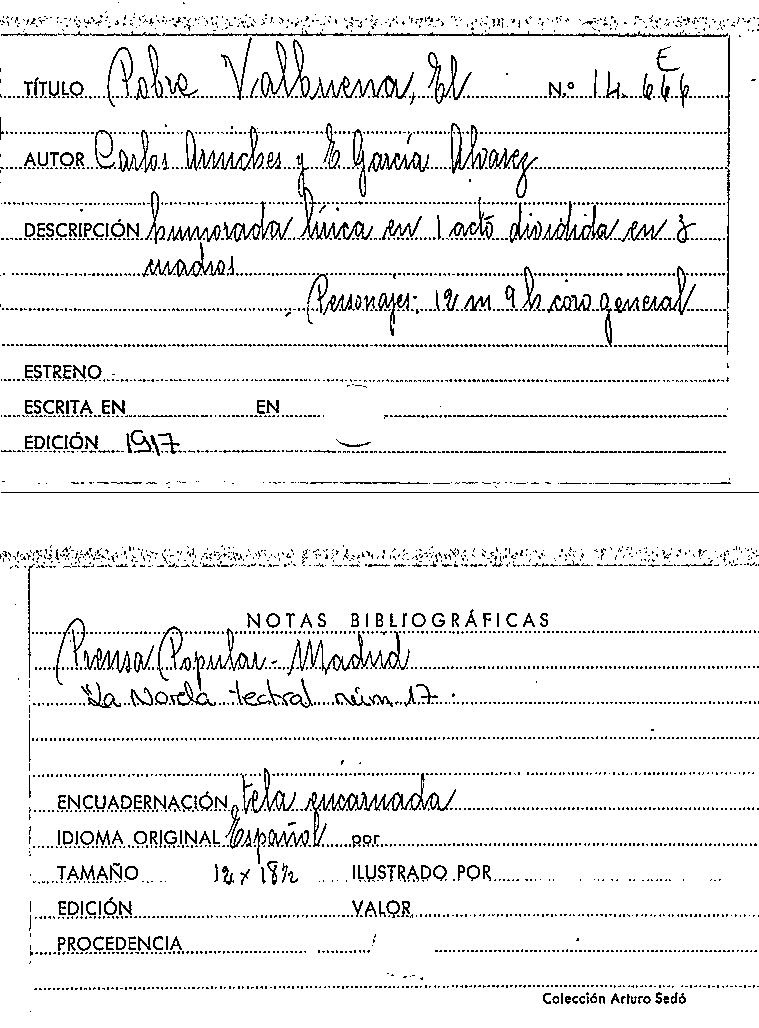 E
TÍTULO Pobre Valbuena, El N.º 14.666
AUTOR Carlos Arniches y E García Alvarez
DESCRIPCIÓN humorada lírica en 1 acto dividida en 3
cuadros
Personajes: 12 m 9 h coro general
ESTRENO
ESCRITA EN EN
EDICIÓN 1917
NOTAS BIBLIOGRÁFICAS
Prensa Popular - Madrid
"La Novela teatral núm 17.
ENCUADERNACIÓN tela encarnada
IDIOMA ORIGINAL Español por
TAMAÑO 12 x 18½ ILUSTRADO POR
EDICIÓN VALOR
PROCEDENCIA
Colección Arturo Sedó